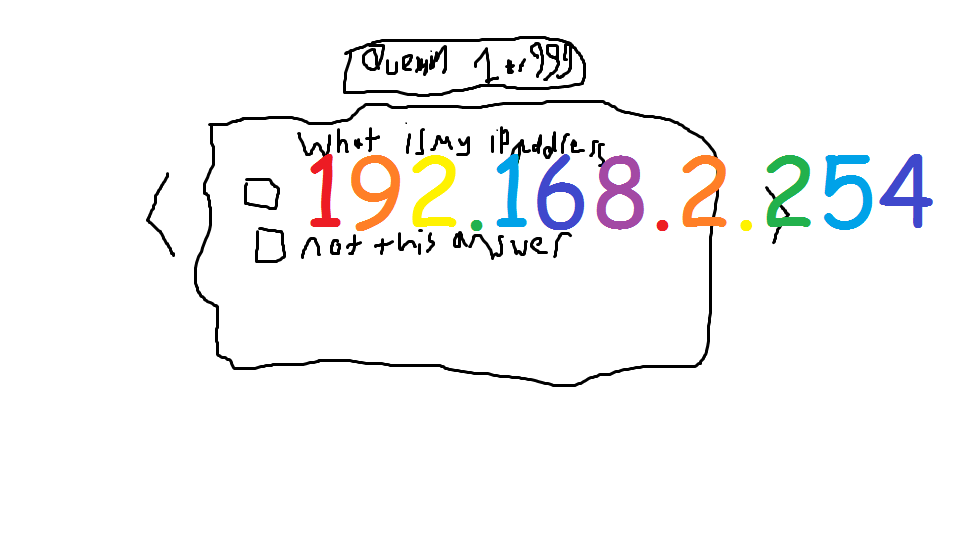 Question 1 of 999
What is my ip address
192.168.2.254
not this answer